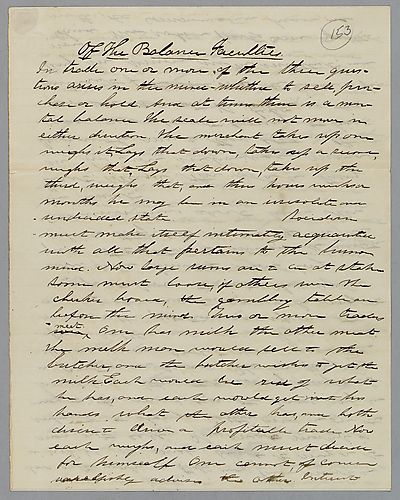 153
Of The Balance Faculties
In trade one or more of the three ques-
tions arises in the mind whether to sell, pur-
chase or hold. And at times there is a men-
tal balance the scale will not move in
either direction. The merchant takes up one
weighs it, lays that down, takes up a second,
weighs that, lays that down, takes up the
third, weighs that, and thus hours weeks or
months he may be in an unsolate or
undecided state
must make itself intimately acquainted
with all that pertains to the human
mind. Now large sums are at stake
some must loose, if others win the
checker board, the gambling table are
before the mind. Two or more traders
meet. One has milk the other meat
The milk man would sell to the
butcher, and the butcher wishes to get the
milk. Each would be rid of what
he has, and each would get into his
hands what the other has, and both
desire to drive a profitable trade. Now
each weighs, and each must decide
for himself. One cannot, of course
advise the other. Interest